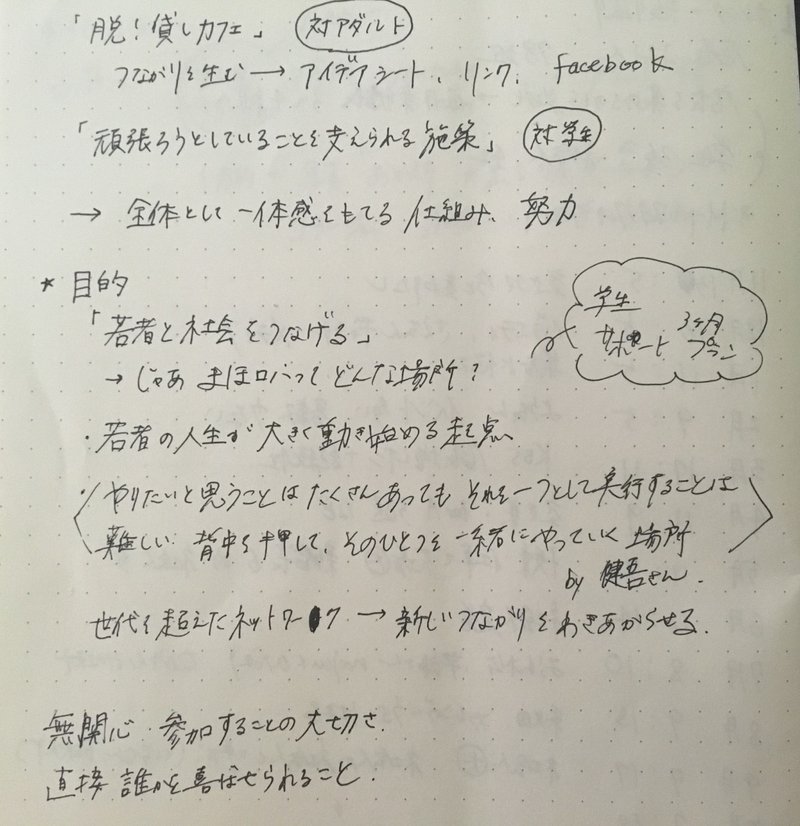 「脱！貸しカフェ」 対アダルト
つながりを生む→アイデアシート、リンク、facebook
「頑張ろうとしていることを支えられる施策」 対学生
→ 全体として一体感をもてる仕組み、努力
* 目的
「若者と社会をつなげる」
→ じゃあ まほロバってどんな場所？
学生
サポート 3ヶ月プラン
・若者の人生が大きく動き始める起点、
・やりたいと思うことはたくさんあっても それを一つとして実行することは
難しい 背中を押して、そのひとつを一緒にやっていく場所
by 健吾さん.
世代を超えたネットワーク → 新しいつながりをわきあがらせる.
無関心 参加することの大切さ.
直接 誰かを喜ばせられること.